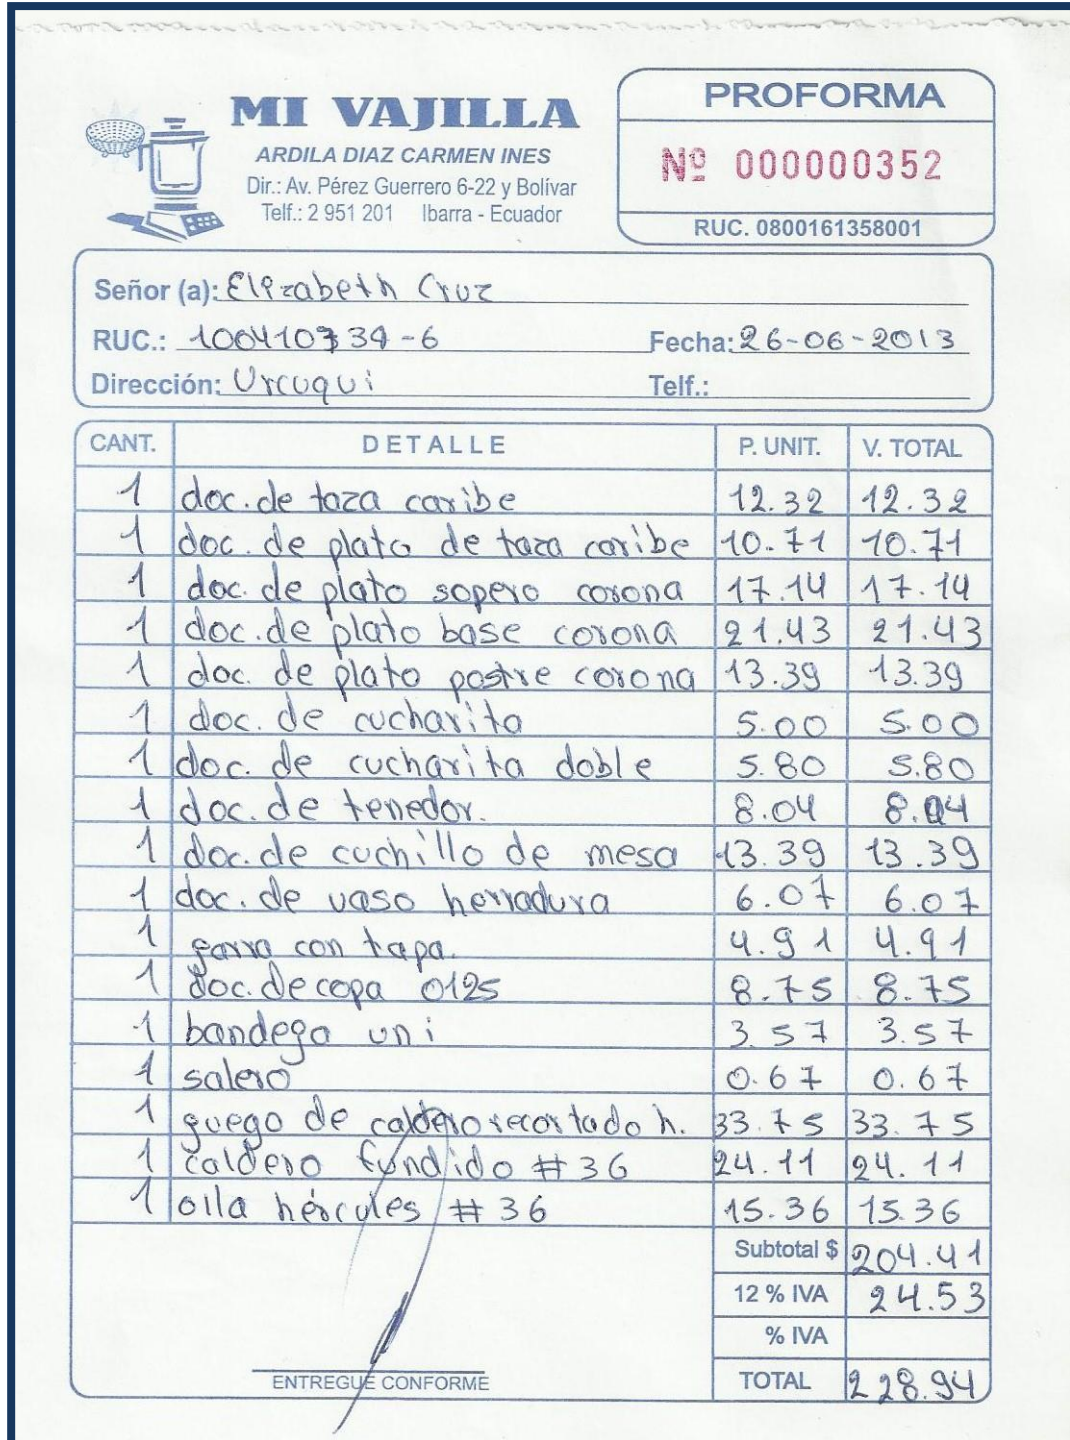 MI VAJILLA
ARDILA DIAZ CARMEN INES
Dir.: Av. Pérez Guerrero 6-22 y Bolívar
Telf.: 2 951 201 Ibarra - Ecuador
PROFORMA
Nº 000000352
RUC. 0800161358001
Señor (a): Elizabeth Cruz
RUC.: 100410739-6 Fecha: 26-06-2013
Dirección: Urcuqui Telf.:
CANT. DETALLE P. UNIT. V. TOTAL
1 doc. de taza caribe 12.32 12.32
1 doc. de plato de taza caribe 10.71 10.71
1 doc. de plato sopero corona 17.14 17.14
1 doc. de plato base corona 21.43 21.43
1 doc. de plato postre corona 13.39 13.39
1 doc. de cucharita 5.00 5.00
1 doc. de cucharita doble 5.80 5.80
1 doc. de tenedor. 8.04 8.04
1 doc. de cuchillo de mesa 13.39 13.39
1 doc. de vaso herradura 6.07 6.07
1 garra con tapa. 4.91 4.91
1 doc. de copa 0125 8.75 8.75
1 bandega uni 3.57 3.57
1 salero 0.67 0.67
1 guego de caldero recortado h. 33.75 33.75
1 caldero fundido #36 24.11 24.11
1 olla hércules #36 15.36 15.36
Subtotal $ 204.41
12 % IVA 24.53
% IVA
TOTAL 228.94
ENTREGUE CONFORME